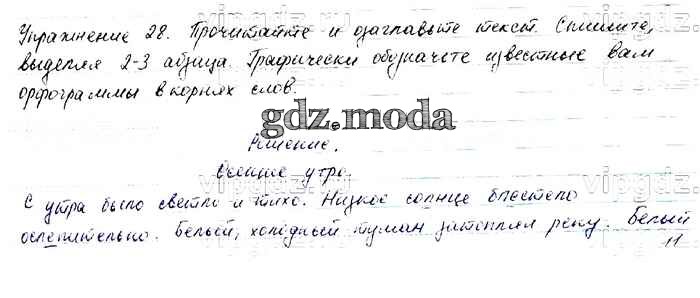 Упражнение 28. Прочитайте и озаглавьте текст. Спишите,
выделяя 2-3 абзаца. Графически обозначьте известные вам
орфограммы в корнях слов.
gdz.moda
Решение.
Осеннее утро.
С утра было светло и тихо. Низкое солнце блестело
ослепительно. Белый, холодный туман затоплял реку. Белый